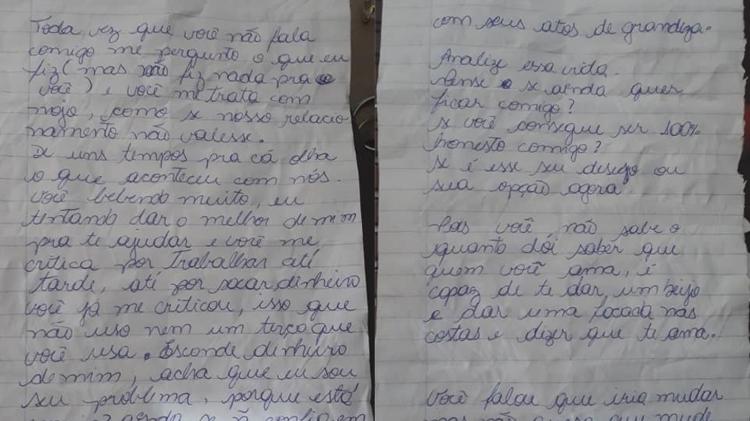 Toda vez que você não fala
comigo me pergunto o que eu
fiz (mas não fiz nada pra
você) e você me trata com
nojo, como se nosso relacio
namento não valesse.
De uns tempos pra cá olha
o que aconteceu com nós.
você bebendo muito, eu
tentando dar o melhor de mim
pra te ajudar e você me
crítica por Trabalhar até
tarde, até por sacar dinheiro
você já me criticou, isso que
não uso nem um terço que
você usa. Esconde dinheiro
de mim, acha que eu sou
seu problema, porque está
ainda se
com seus atos de grandeza.
Analize essa vida.
Pense se ainda quer
ficar comigo?
se você consegue ser 100%
honesto comigo?
se é esse seu desejo ou
sua opção agora
Pois você não sabe o
quanto dói saber que
quem você ama, é
capaz de te dar um beijo
e dar uma facada nas
costas e dizer que te ama.
você falou que iria mudar
mas não